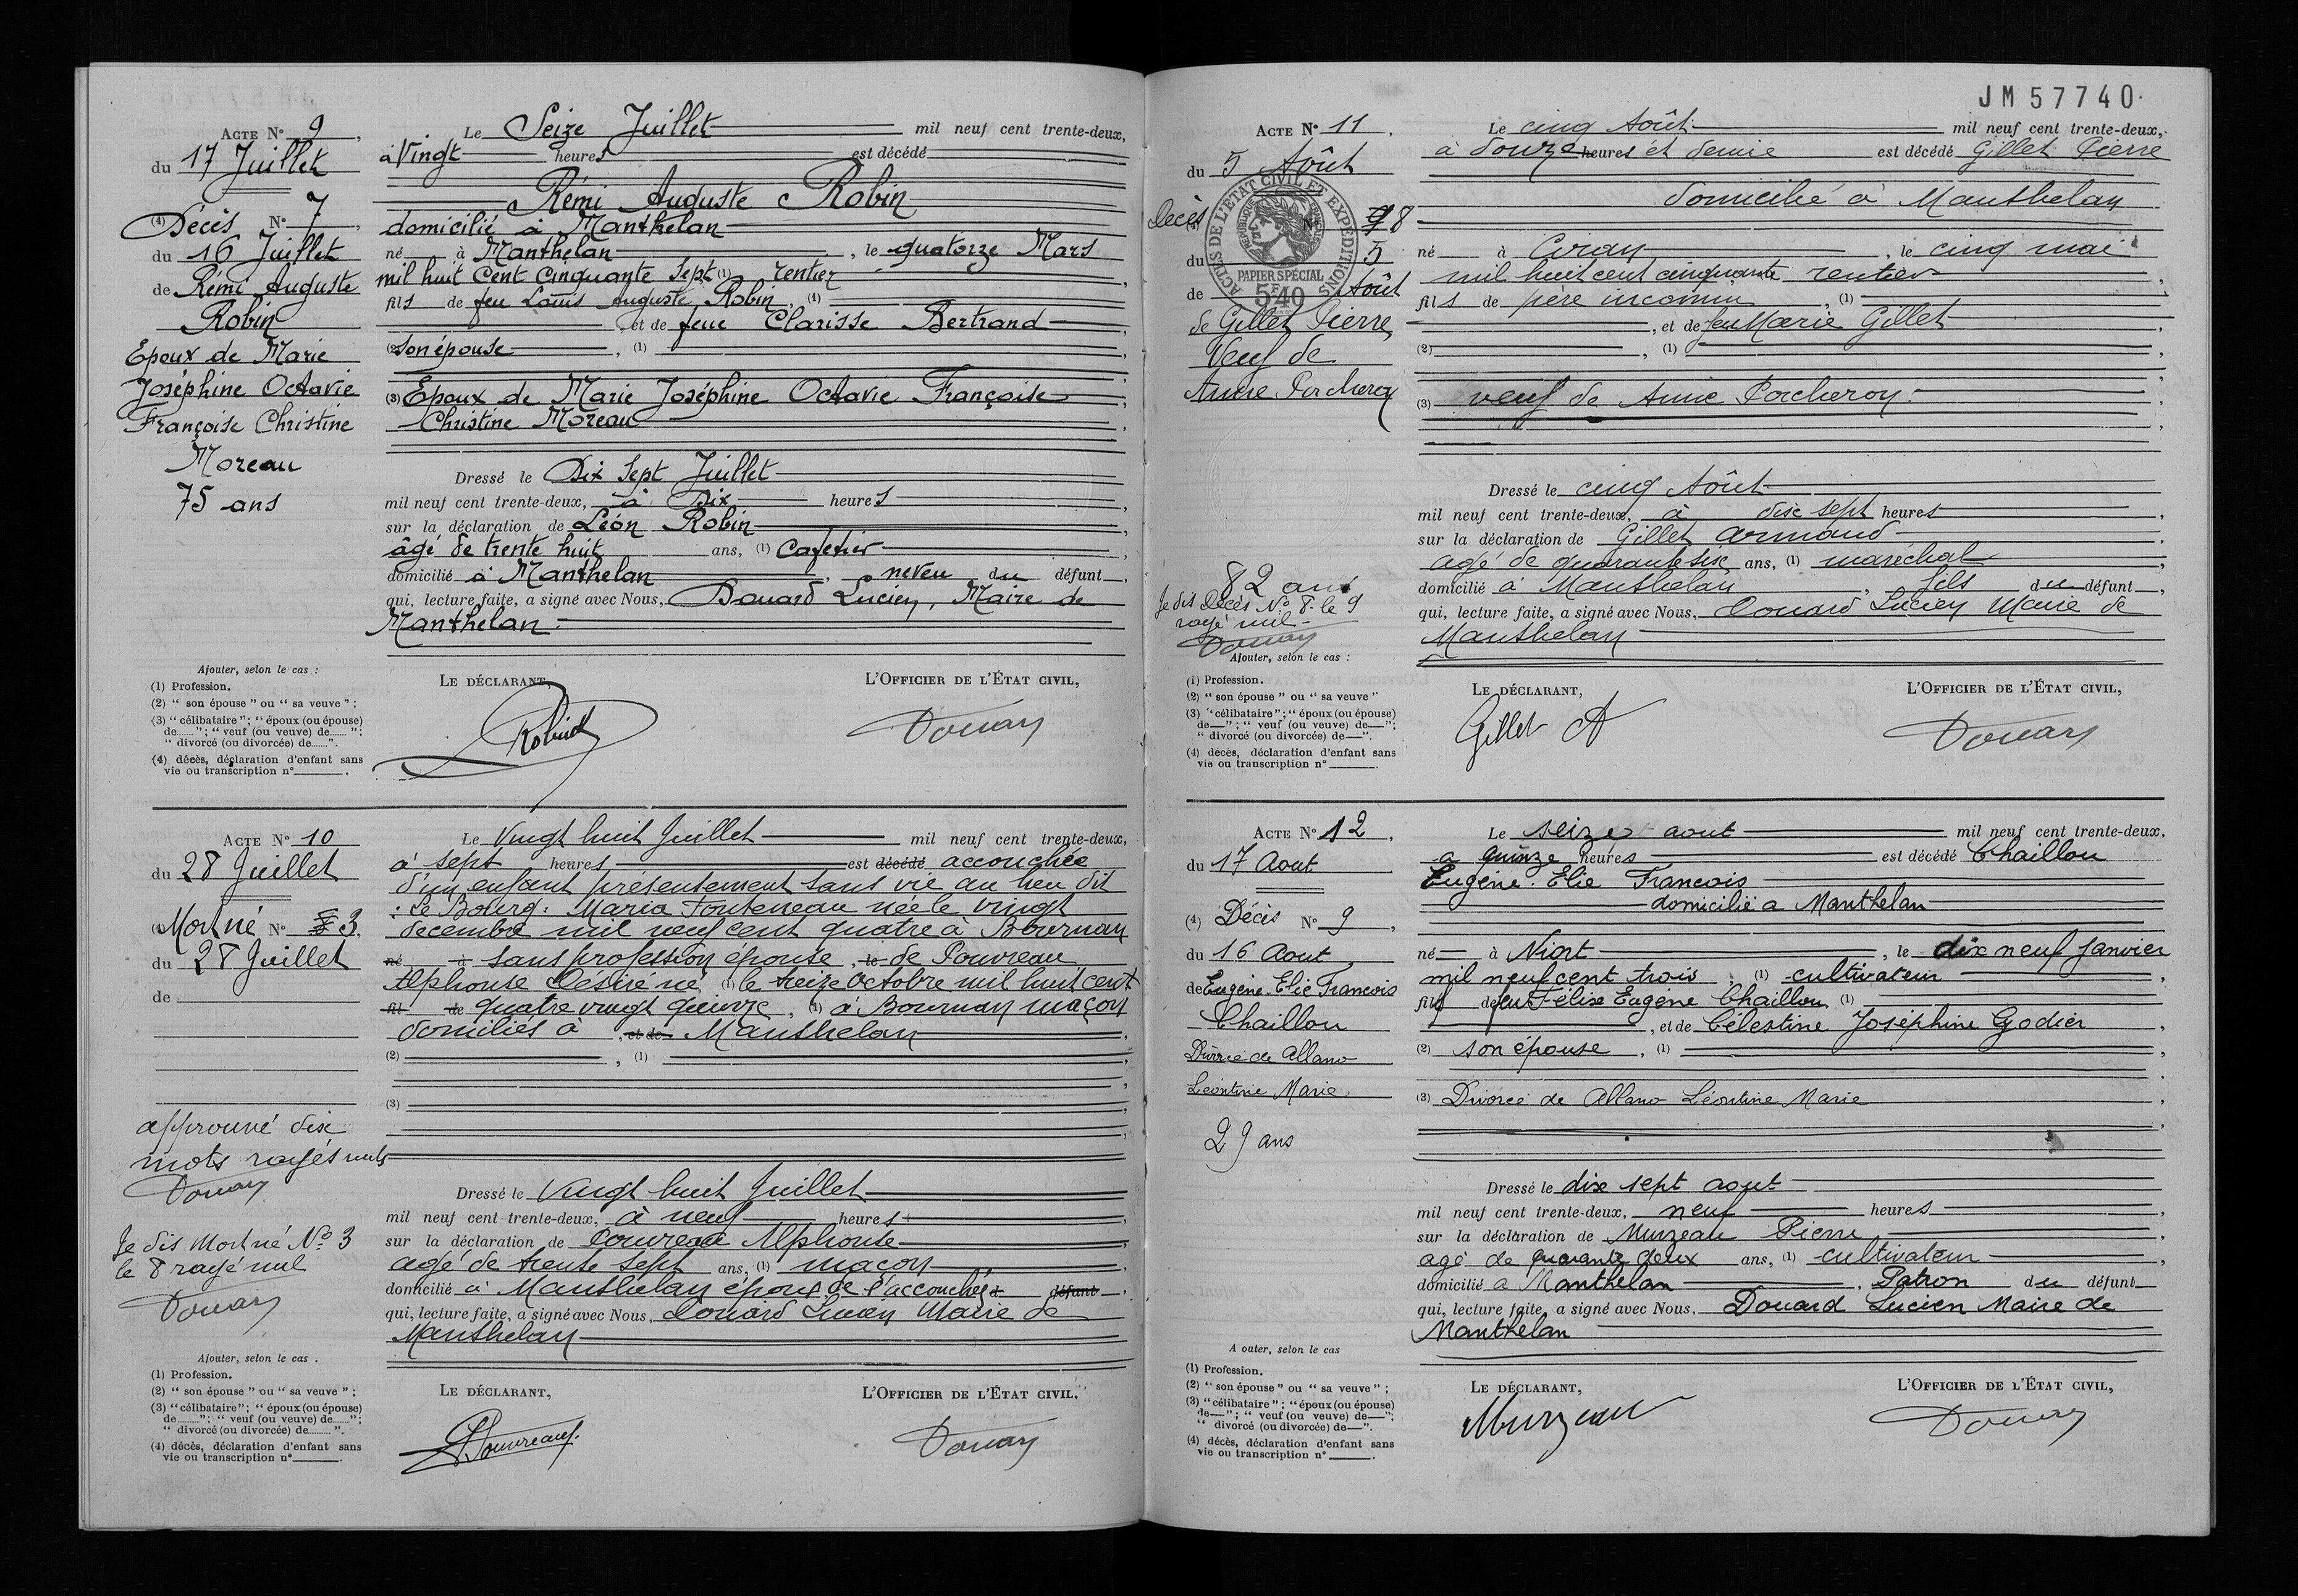 ACTE N° 9,
du 17 Juillet
(4) Décès N° 7,
du 16 Juillet
de Rémi Auguste
Robin
Epoux de Marie
Joséphine Octavie
Françoise Christine
Moreau
75 ans
Le Seize Juillet mil neuf cent trente-deux,
à Vingt heures est décédé
Rémi Auguste Robin
domicilié à Manthelan
né à Manthelan, le quatorze Mars
mil huit Cent Cinquante Sept (1) rentier,
fils de feu Louis Auguste Robin, (1)
, et de feue Clarisse Bertrand,
(2) son épouse, (1)
(3) Epoux de Marie Joséphine Octavie Françoise
Christine Moreau
Dressé le Dix Sept Juillet
mil neuf cent trente-deux, à Dix heures,
sur la déclaration de Léon Robin
âgé de trente huit ans, (1) Cafetier,
domicilié à Manthelan, neveu du défunt,
qui, lecture faite, a signé avec Nous, Douard Lucien, Maire de
Manthelan
Ajouter, selon le cas :
(1) Profession.
(2) “ son épouse ” ou “ sa veuve ” ;
(3) “ célibataire ”; “ époux (ou épouse)
de...... ”; “ veuf (ou veuve) de...... ”;
“ divorcé (ou divorcée) de...... ”.
(4) décès, déclaration d'enfant sans
vie ou transcription n° .
LE DÉCLARANT,
L'OFFICIER DE L'ÉTAT CIVIL,
Robin
Douard
ACTE N° 10
du 28 Juillet
(4) Mort né N° 8 3,
du 28 Juillet
de
approuvé dix
mots rayés nuls
Douard
Je dis Mort né N° 3
le 8 rayé nul
Douard
Le Vingt huit Juillet mil neuf cent trente-deux,
à sept heures est décédé accouchée
d'un enfant présentement sans vie au lieu dit
: Le Bourg : Maria Fonteneau née le vingt
décembre mil neuf cent quatre à Bournan
né à sans profession épouse, le de Pouvreau
Alphonse Désiré né (1) le treize octobre mil huit cent
fil de quatre vingt quinze, (1) à Bournan maçon
domiciliés à , et de Manthelan
(2) , (1)
(3)
Dressé le Vingt huit Juillet
mil neuf cent trente-deux, à neuf heures,
sur la déclaration de Pouvreau Alphonse
agé de trente sept ans, (1) maçon,
domicilié à Manthelan époux de l'accouchée d défunt,
qui, lecture faite, a signé avec Nous, Douard Lucien Maire de
Manthelan
Ajouter, selon le cas .
(1) Profession.
(2) “ son épouse ” ou “ sa veuve ” ;
(3) “ célibataire ”; “ époux (ou épouse)
de...... ”; “ veuf (ou veuve) de...... ”;
“ divorcé (ou divorcée) de...... ”.
(4) décès, déclaration d'enfant sans
vie ou transcription n° .
LE DÉCLARANT,
L'OFFICIER DE L'ÉTAT CIVIL.
Pouvreau
Douard
JM 57740
ACTE N° 11,
du 5 Août
Décès
(4) N° 9 8
du 5
de Août
ACTES DE L'ETAT CIVIL ET EXPEDITIONS
REPUBLIQUE FRANÇAISE
PAPIER SPÉCIAL
5F40
de Gillet Pierre
Veuf de
Anne Porcheron
82 ans
Je dis Décès N° 8. le 9
rayé nul -
Douard
Le cinq Août mil neuf cent trente-deux,
à douze heures et demie est décédé Gillet Pierre
domicilié à Manthelan
né à Ciran, le cinq mai
mil huit cent cinquante rentier,
fils de père inconnu, (1)
, et de feu Marie Gillet,
(2) , (1)
(3) veuf de Anne Porcheron.
Dressé le cinq Août
mil neuf cent trente-deux, à dix sept heures,
sur la déclaration de Gillet Armand
agé de quarante six ans, (1) maréchal,
domicilié à Manthelan, fils du défunt,
qui, lecture faite, a signé avec Nous, Douard Lucien Maire de
Manthelan
Ajouter, selon le cas :
(1) Profession.
(2) “ son épouse ” ou “ sa veuve ”
(3) “ célibataire ”; “ époux (ou épouse)
de—”; “ veuf (ou veuve) de—”;
“ divorcé (ou divorcée) de—”.
(4) décès, déclaration d'enfant sans
vie ou transcription n° .
LE DÉCLARANT,
L'OFFICIER DE L'ÉTAT CIVIL,
Gillet A
Douard
ACTE N° 12,
du 17 Aout
(4) Décès N° 9,
du 16 Aout,
de Eugène Elie Francois
Chaillou
Divorcé de Allano
Léontine Marie
29 ans
Le seize aout mil neuf cent trente-deux,
a quinze heures est décédé Chaillou
Eugène. Elie Francois
domicilié a Manthelan
né à Niort, le dix neuf janvier
mil neuf cent trois, (1) cultivateur,
fils de feu Félix Eugène Chaillou, (1)
, et de Célestine Joséphine Godier,
(2) son épouse, (1)
(3) Divorcé de Allano Léontine Marie
Dressé le dix sept aout
mil neuf cent trente-deux, neuf heures,
sur la déclaration de Murzeau Pierre
agé de quarante deux ans, (1) cultivateur,
domicilié a Manthelan, Patron du défunt
qui, lecture faite, a signé avec Nous, Douard Lucien Maire de
Manthelan
A outer, selon le cas
(1) Profession.
(2) “ son épouse ” ou “ sa veuve ” ;
(3) “ célibataire ”; “ époux (ou épouse)
de—”; “ veuf (ou veuve) de—”;
“ divorcé (ou divorcée) de—”.
(4) décès, déclaration d'enfant sans
vie ou transcription n° .
LE DÉCLARANT,
L'OFFICIER DE L'ÉTAT CIVIL,
Murzeau
Douard